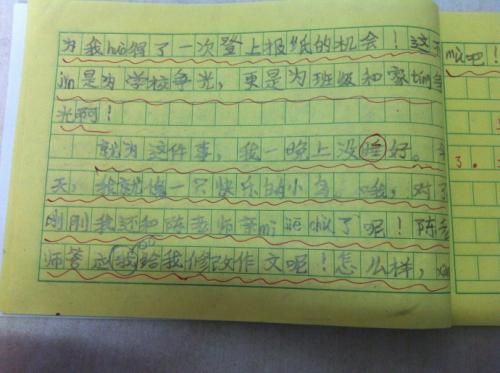 为我huò得了一次登上报纸的机会！这不
jǐn是为学校争光，更是为班级和家tíng争
光啊！
就为这件事，我一晚上没睡好。
天，我就像一只快乐的小鸟。哦，对了
刚刚我还和陈老师亲mì jiē chù了呢！陈老
师答应给我修改作文呢！怎么样，
吧！
3.